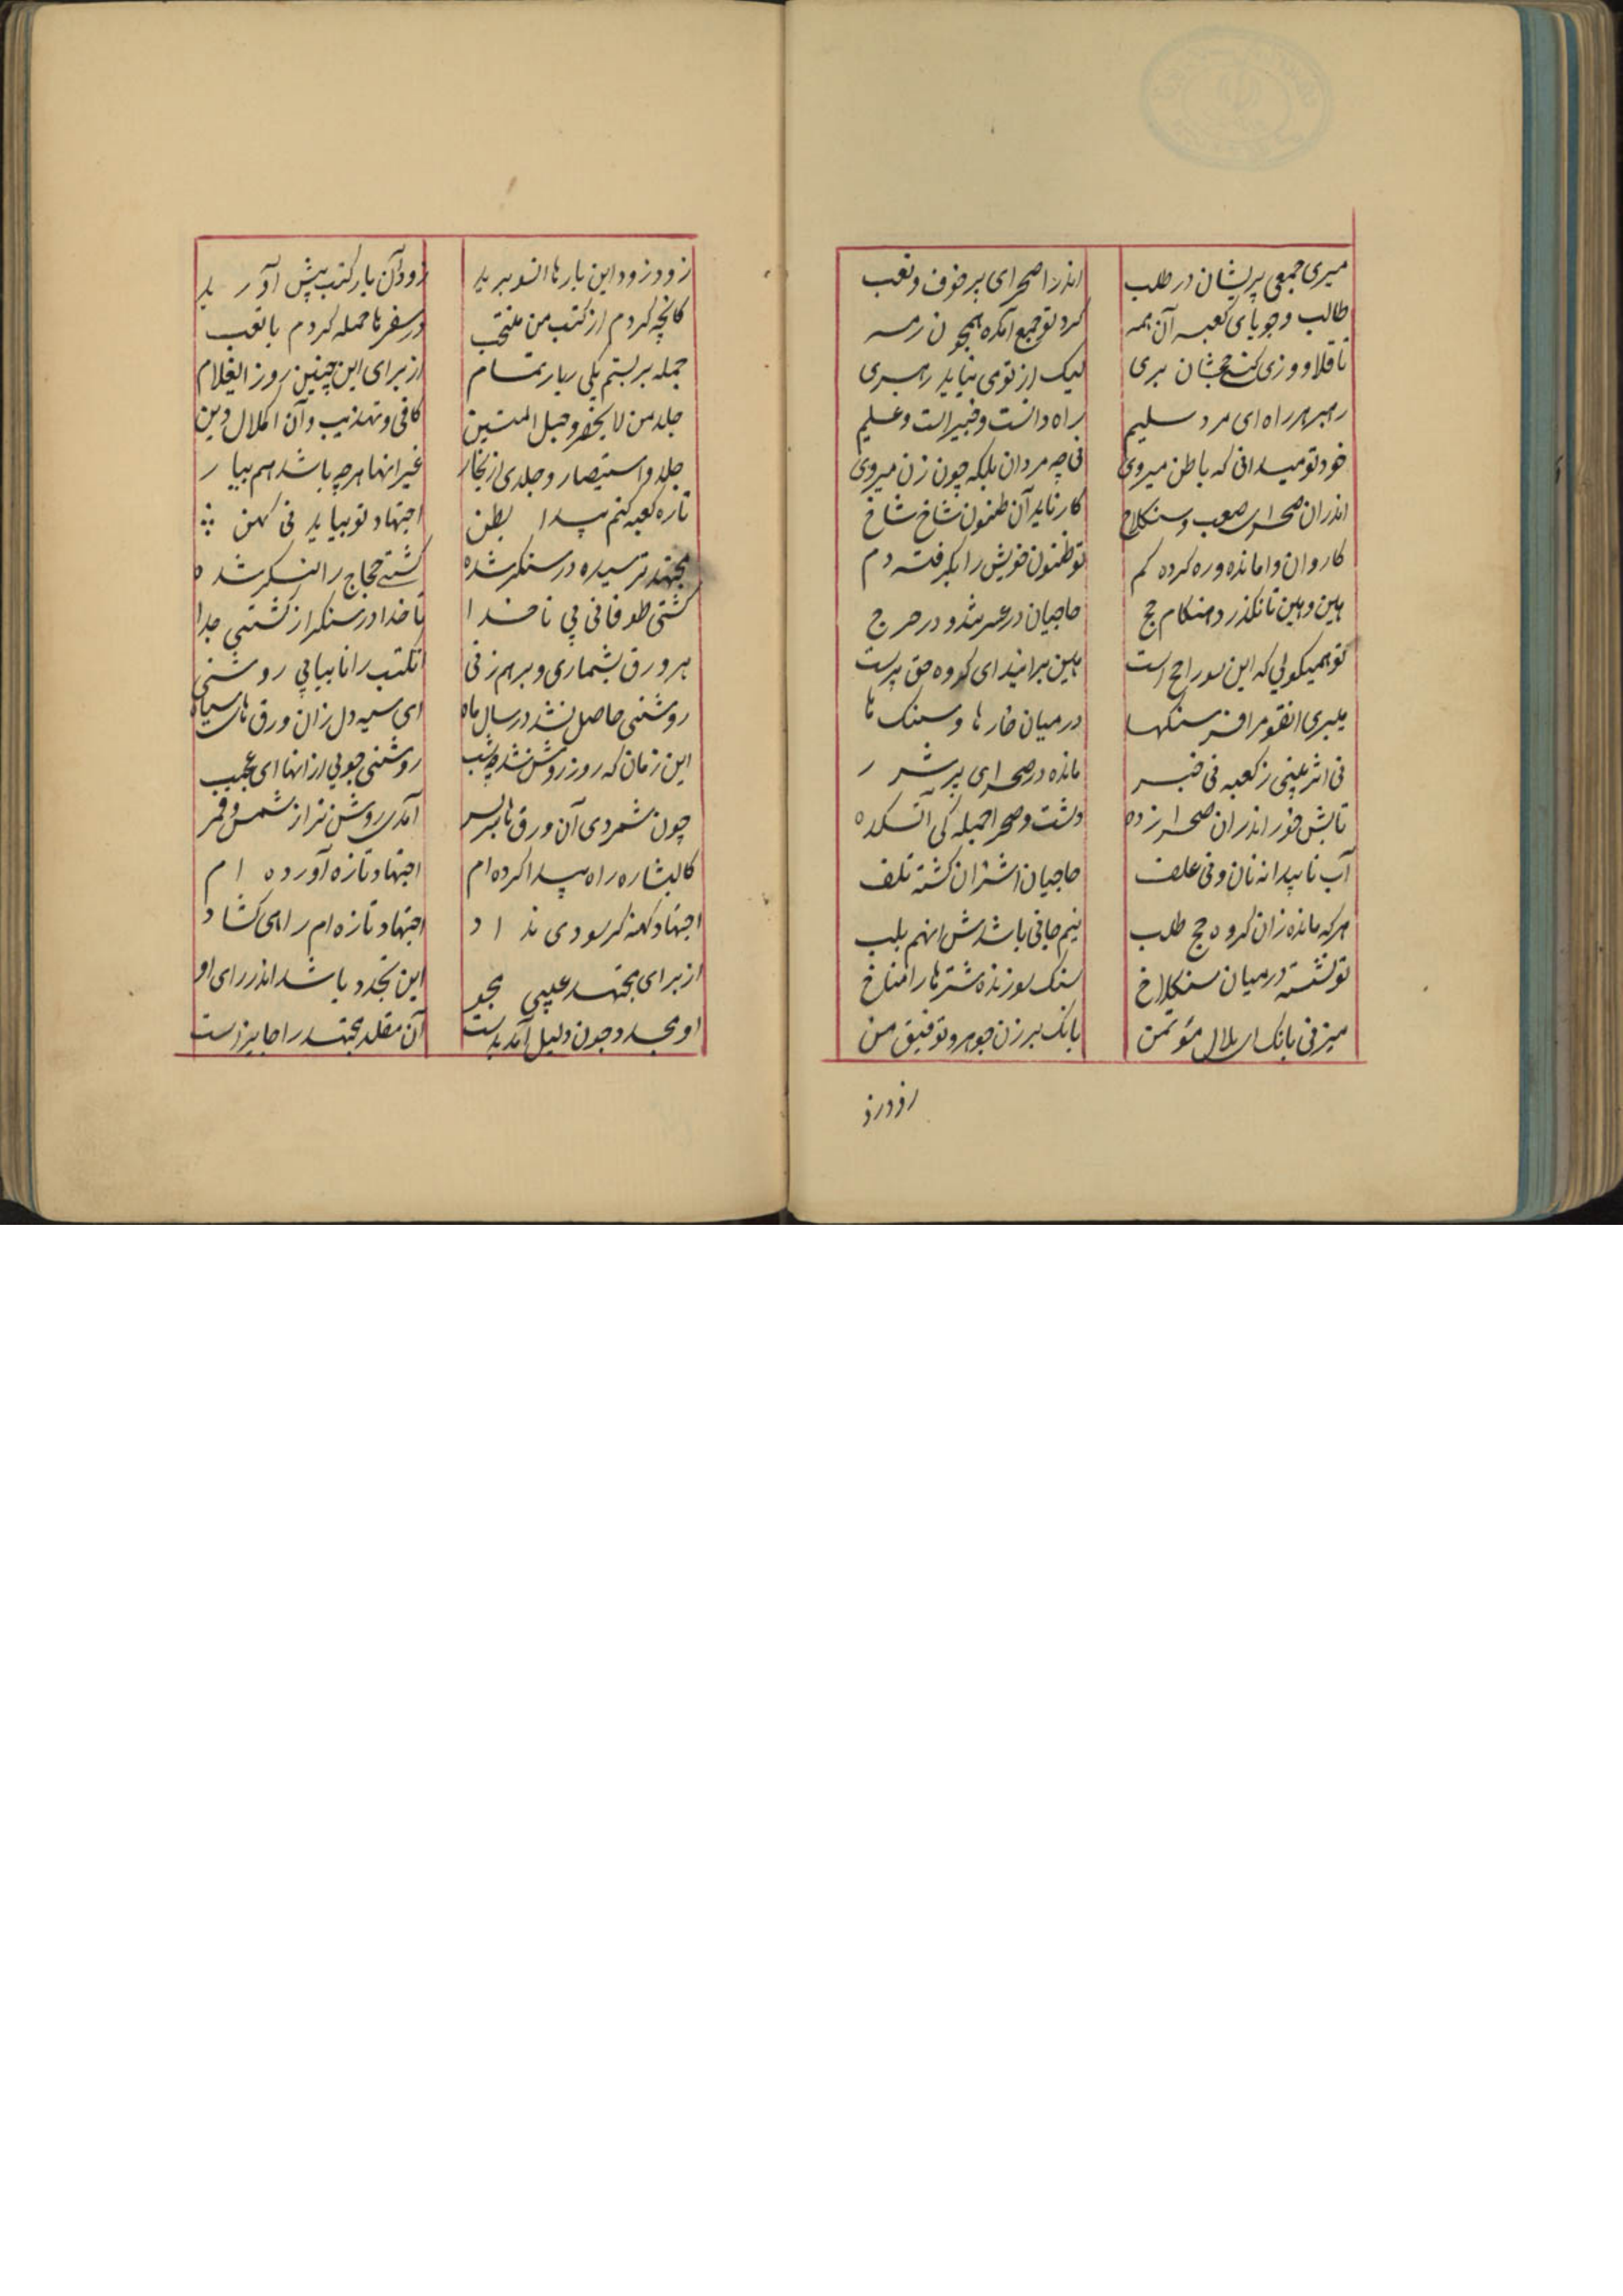 میبری جمعی پریشان در طلب اندر اصحرای پر خوف و تعب
طالب و جویای کعبه آن همه کرد تو جمع آمده همچون رمه
تا قلاووزی کنی حجشان بری لیک از تو می نیاید رهبری
رهبر هر راه ای مرد سلیم راه دانست و خبیر است و علیم
خود تو میدانی که با ظن میروی نی چه مردان بلکه چون زن میروی
اندران صحرای صعب و سنکلاخ کار ناید آن ظنون شاخ شاخ
کاروان وامانده و ره کرده کم تو ظنون خویش را بکرفته دم
هین و هین تا نکذرد هنکام حج حاجیان در عسر شد و در حرج
تو همیکویی که این سو راجح است هین برانید ای کروه حق پرست
میبری انقوم را فرسنکها در میان خارها و سنک ها
نی اثر بینی ز کعبه نی خبر مانده در صحرای پر شرر
تابش خور اندران صحرا زده دشت و صحرا جمله کی آتشکده
آب ناپیدا نه نان و نی علف حاجیان اشتران کشته تلف
هر که مانده زان کروه حج طلب نیم جانی باشدش انهم بلب
تو نشسته در میان سنکلاخ سنک سوزنده شترها را مناخ
میزنی بانک ای بلال مؤتمن بانک برزن جوهر و توفیق من
زود زود
زود زود این بارها انسو برید زود آن بار کتب پیش آورید
کانچه کردم از کتب من منتخب در سفرها حمله کردم با تعب
جمله بر بستم یکی ربار تمام از برای این چنین روز ایغلام
جلد من لا یحضر و حبل المتین کافی و تهذیب و آن اکمال دین
جلد و استبصار و جلدی از بحار غیر انها هر چه باشد هم بیار
تا ره کعبه کنم پیدا بظن اجتهاد نو بیاید نی کهن
مجتهد ترسیده در سنکر شده کشتی حجاج را لنکر شده
کشتی طوفانی بی ناخدا ناخدا در سنکر از کشتی جدا
هر ورق بشماری و برهم زنی انکتب را تا بیابی روشنی
روشنی حاصل نشد در سال و ماه ای سیه دل زان ورق های سیاه
این زمان که روز روشن شد چو شب روشنی جویی از انها ای عجیب
چون شمردی آن ورق ها سر بسر آمدی روشن تر از شمس و قمر
کالبشاره راه پیدا کرده ام اجتهاد تازه آورده ام
اجتهاد کهنه کر سودی نداد اجتهاد تازه ام راهی کشاد
از برای مجتهد عیبی مجو این تجدد باشد اندر رای او
او مجدد چون دلیل آمد بدست آن مقلد مجتهد را جایز است